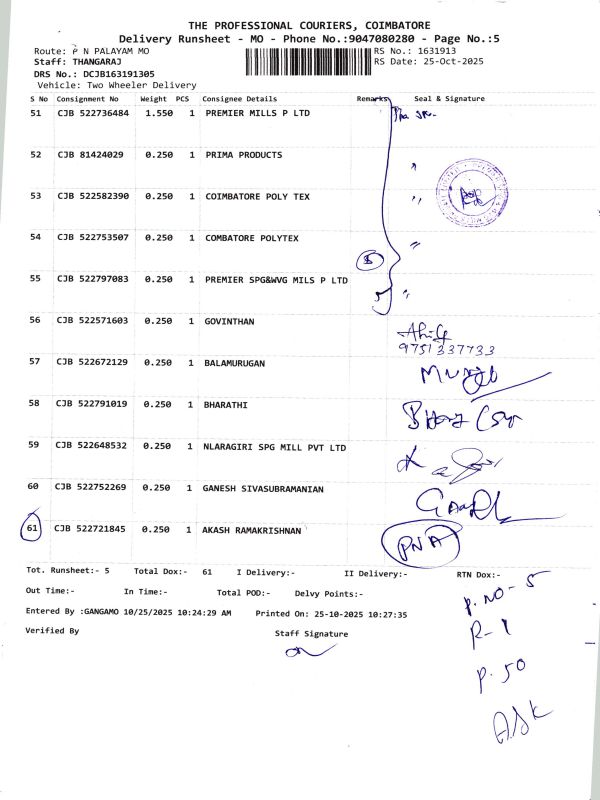 THE PROFESSIONAL COURIERS, COIMBATORE
Delivery Runsheet - MO - Phone No.:9047080280 - Page No.:5
Route: P N PALAYAM MO
RS No.: 1631913
Staff: THANGARAJ
RS Date: 25-Oct-2025
DRS No.: DCJB163191305
Vehicle: Two Wheeler Delivery
S No Consignment No Weight PCS Consignee Details Remarks Seal & Signature
51 CJB 522736484 1.550 1 PREMIER MILLS P LTD
52 CJB 81424029 0.250 1 PRIMA PRODUCTS "
53 CJB 522582390 0.250 1 COIMBATORE POLY TEX "
54 CJB 522753507 0.250 1 COMBATORE POLYTEX "
55 CJB 522797083 0.250 1 PREMIER SPG&WVG MILS P LTD 5 "
56 CJB 522571603 0.250 1 GOVINTHAN
9751337733
57 CJB 522672129 0.250 1 BALAMURUGAN
58 CJB 522791019 0.250 1 BHARATHI
59 CJB 522648532 0.250 1 NLARAGIRI SPG MILL PVT LTD
60 CJB 522752269 0.250 1 GANESH SIVASUBRAMANIAN
61 CJB 522721845 0.250 1 AKASH RAMAKRISHNAN PNA
Tot. Runsheet:- 5 Total Dox:- 61 I Delivery:- II Delivery:- RTN Dox:-
Out Time:- In Time:- Total POD:- Delvy Points:-
P. NO - 5
Entered By :GANGAMO 10/25/2025 10:24:29 AM Printed On: 25-10-2025 10:27:35
R-1
Verified By Staff Signature
P. 50
ASK